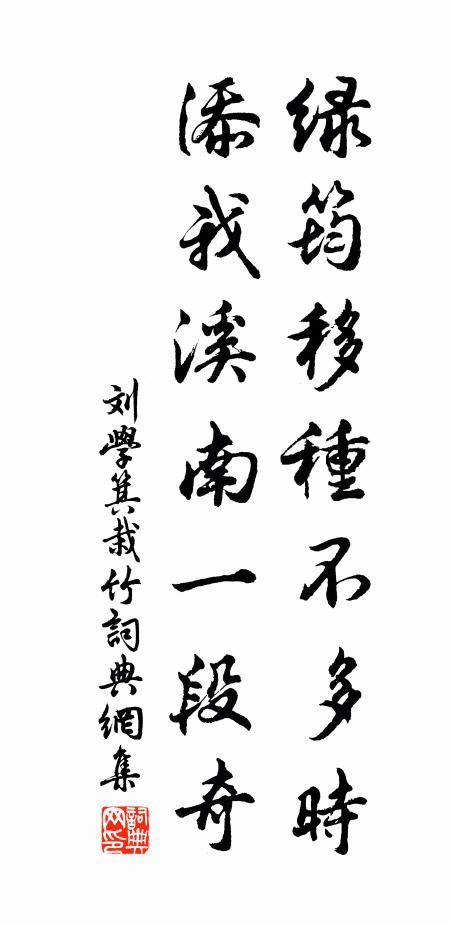 绿筠移種不多時
添我溪南一段奇
刘學箕栽竹詞典網集
詞典网印